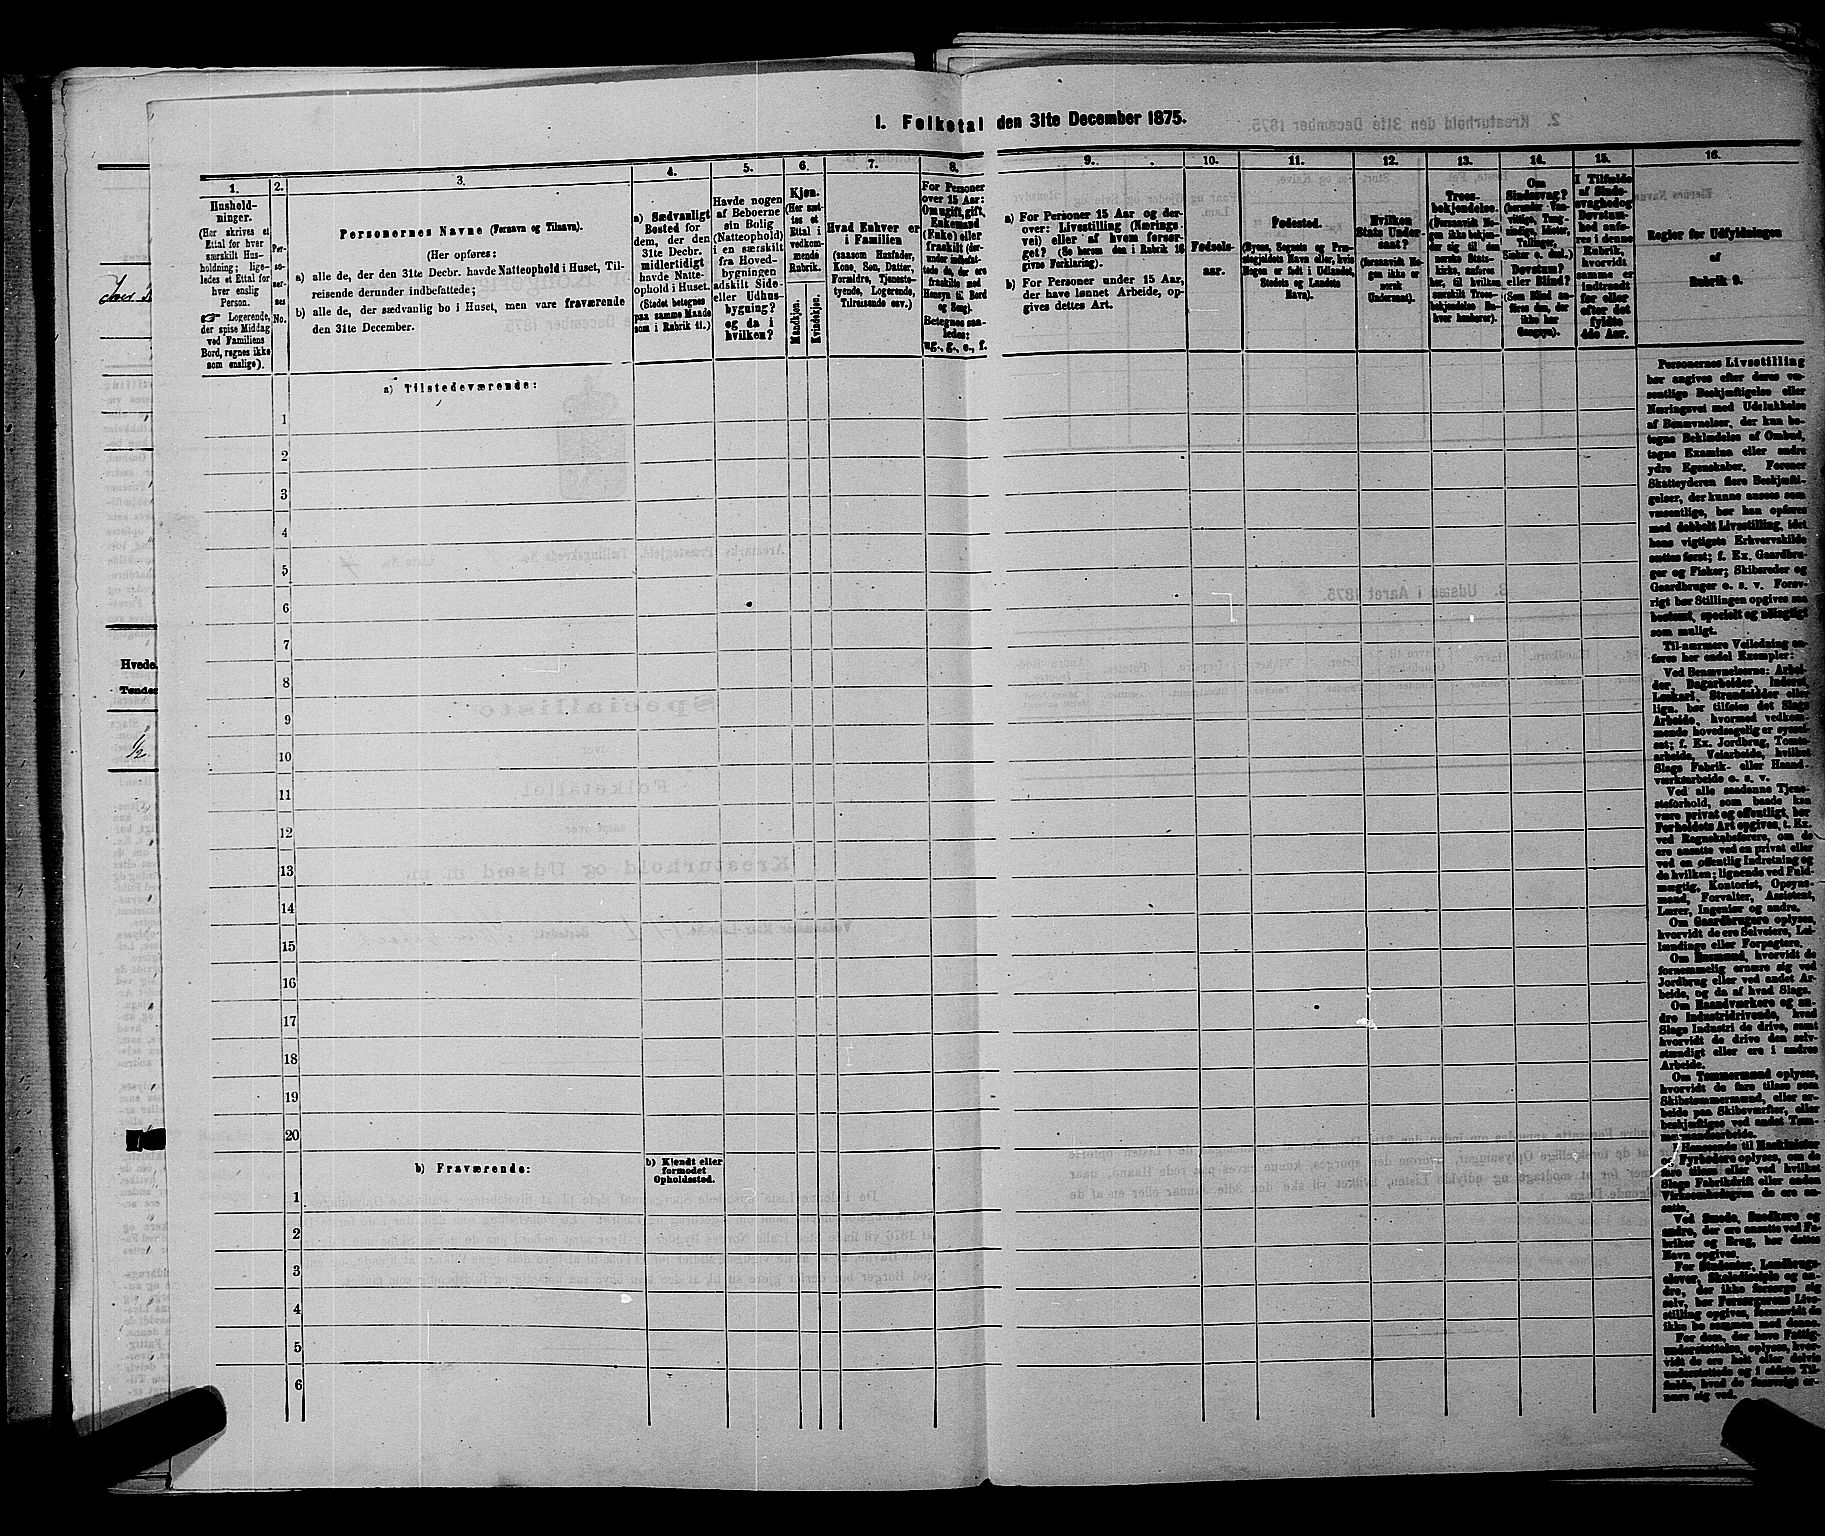 I. Folketal den 31te December 1875.
1.
Hushold-
ninger.
(Her skrives et
Ettal for hver
særskilt Hus-
holdning; lige-
ledes et Ettal for
hver enslig
Person.
☞ Logerende,
der spise Middag
ved Familiens
Bord, regnes ikke
som enslige).
2.
Per-
so-
ner-
nes
No.
3.
Personernes Navne (Fornavn og Tilnavn).
(Her opføres:
a) alle de, der den 31te Decbr. havde Natteophold i Huset, Til-
reisende derunder indbefattede;
b) alle de, der sædvanlig bo i Huset, men vare fraværende
den 31te December.
4.
a) Sædvanligt
Bosted for
dem, der den
31te Decbr.
midlertidigt
havde Natte-
ophold i Huset.
(Stedet betegnes
paa samme Maade
som i Rubrik 11.)
5.
Havde nogen
af Beboerne
sin Bolig
(Natteophold)
i en særskilt
fra Hoved-
bygningen
adskilt Side-
eller Udhus-
bygning?
og da i
hvilken?
6.
Kjøn.
(Her sæt-
tes et
Ettal i
vedkom-
mende
Rubrik.
Mandkjøn.
Kvindekjøn.
7.
Hvad Enhver er
i Familien
(saasom Husfader,
Kone, Søn, Datter,
Forældre, Tjeneste-
tyende, Logerende,
Tilreisende osv.)
8.
For Personer
over 15 Aar:
Om ugift, gift,
Enkemand
(Enke) eller
fraskilt (der-
under indbefat-
tede de, der ere
fraskilte med
Hensyn til Bord
og Seng).
Betegnes saa-
ledes:
ug., g., e., f.
9.
a) For Personer 15 Aar og der-
over: Livsstilling (Nærings-
vei) eller af hvem forsør-
get? (Se herom den i Rubrik 16
givne Forklaring).
b) For Personer under 15 Aar,
der have lønnet Arbeide, op-
gives dettes Art.
10.
Fødsels-
aar.
11.
Fødested.
(Byens, Sognets og Præ-
stegjeldets Navn eller, hvis
Nogen er født i Udlandet,
Stedets og Landets
Navn).
12.
Hvilken
Stats Under-
saat?
(forsaavidt No-
gen ikke er
norsk
Undersaat).
13.
Troes-
bekjendelse.
(Personer, som ikke bekjen-
der sig til den
norske Stats-
kirke, anføres
her, til hvilken
særskilt Troes-
bekjendelse En-
hver henhører).
14.
Om
Sindssvag?
Døvstum?
eller Blind?
(Som Blind an-
føres den, der
ikke har
Gangsyn).
15.
I Tilfælde
af Sinds-
svaghed og
Døvstum-
hed anfø-
res i denne
Rubrik,
hvorvidt
samme er
indtraadt
før eller
efter det
fyldte
4de Aar.
16.
Regler for Udfyldningen
af
Rubrik 9.
a) Tilstedeværende:
1
2
3
4
5
6
7
8
9
10
11
12
13
14
15
16
17
18
19
20
b) Fraværende:
b) Kjendt eller
formodet
Opholdssted.
1
2
3
4
5
6
Personernes Livsstilling
bør angives efter deres væ-
sentlige Beskjæftigelse eller
Næringsvei med Udelukkelse
af Benævnelser, der kun be-
tegne Beklædelse af Ombud,
tagne Examina eller andre
ydre Egenskaber. Forener
Skatteyderen flere Beskjæfti-
gelser, der kunne ansees som
væsentlige, bør han opføres
med dobbelt Livsstilling, idet
hans vigtigste Erhvervskilde
sættes først; f. Ex. Gaardbru-
ger og Fisker; Skibsreder og
Gaardbruger o. s. v. Forøv-
rigt bør Stillingen opgives saa
bestemt, specielt og nøiagtigt
som muligt.
Til nærmere Veiledning an-
føres her endel Exempler:
Ved Benævnelserne: Arbei-
der, Dagarbeider, Inderst,
Løskarl, Strandsidder eller
lign. bør tilføies det Slags
Arbeide, hvormed vedkom-
mende hovedsagelig er syssel-
sat; f. Ex. Jordbrug, Tomte-
arbeide, Veiarbeide, hvilket
Slags Fabrik- eller Haand-
værksarbeide o. s. v.
Ved alle saadanne Tjene-
steforhold, som baade kan
være privat og offentligt, bør
Forholdets Art opgives, f. Ex.
ved Regnskabsførere, om de
ere ansatte ved en privat eller
ved en offentlig Indretning og
da hvilken; lignende ved Fuld-
mægtig, Kontorist, Opsyns-
mand, Forvalter, Assistent,
Lærer, Ingeniør og andre.
Om Gaardbrugere oplyses,
hvorvidt de ere Selveiere, Lei-
lændinge eller Forpagtere.
Om Husmænd, hvorvidt de
fornemmelig ernære sig ved
Jordbrug eller ved andet Ar-
beide, og da af hvad Slags.
Om Haandværkere og an-
dre Industridrivende, hvad
Slags Industri de drive, samt
hvorvidt de drive den selv-
stændigt eller ere i andres
Arbeide.
Om Tømmermænd oplyses,
hvorvidt de fare tilsøs som
Skibstømmermænd, eller ar-
beide paa Skibsværfter, eller
beskjæftiges ved andet Tøm-
mermandsarbeide.
I Henseende til Maskinister
og Fyrbødere oplyses, om de
fare tilsøes eller ved hvilket
Slags Fabrikdrift eller anden
Virksomhed de ere an-
satte.
Ved Smede, Snedkere og
andre, der ere ansatte ved Fa-
briker og Brug, bør dettes
Navn opgives.
For Studenter, Landbrugs-
elever, Skoledisciple og an-
dre, der ikke forsørge sig
selv, bør Forsørgerens Livs-
stilling opgives, forsaavidt de
ikke bo sammen med denne.
For dem, der have Fattig-
understøttelse, oplyses, hvor-
vidt de ere helt eller delvis
understøttede og i sidste Til-
fælde, hvad de forøvrigt er-
nære sig ved.
Hvede.
Tønder
1/2